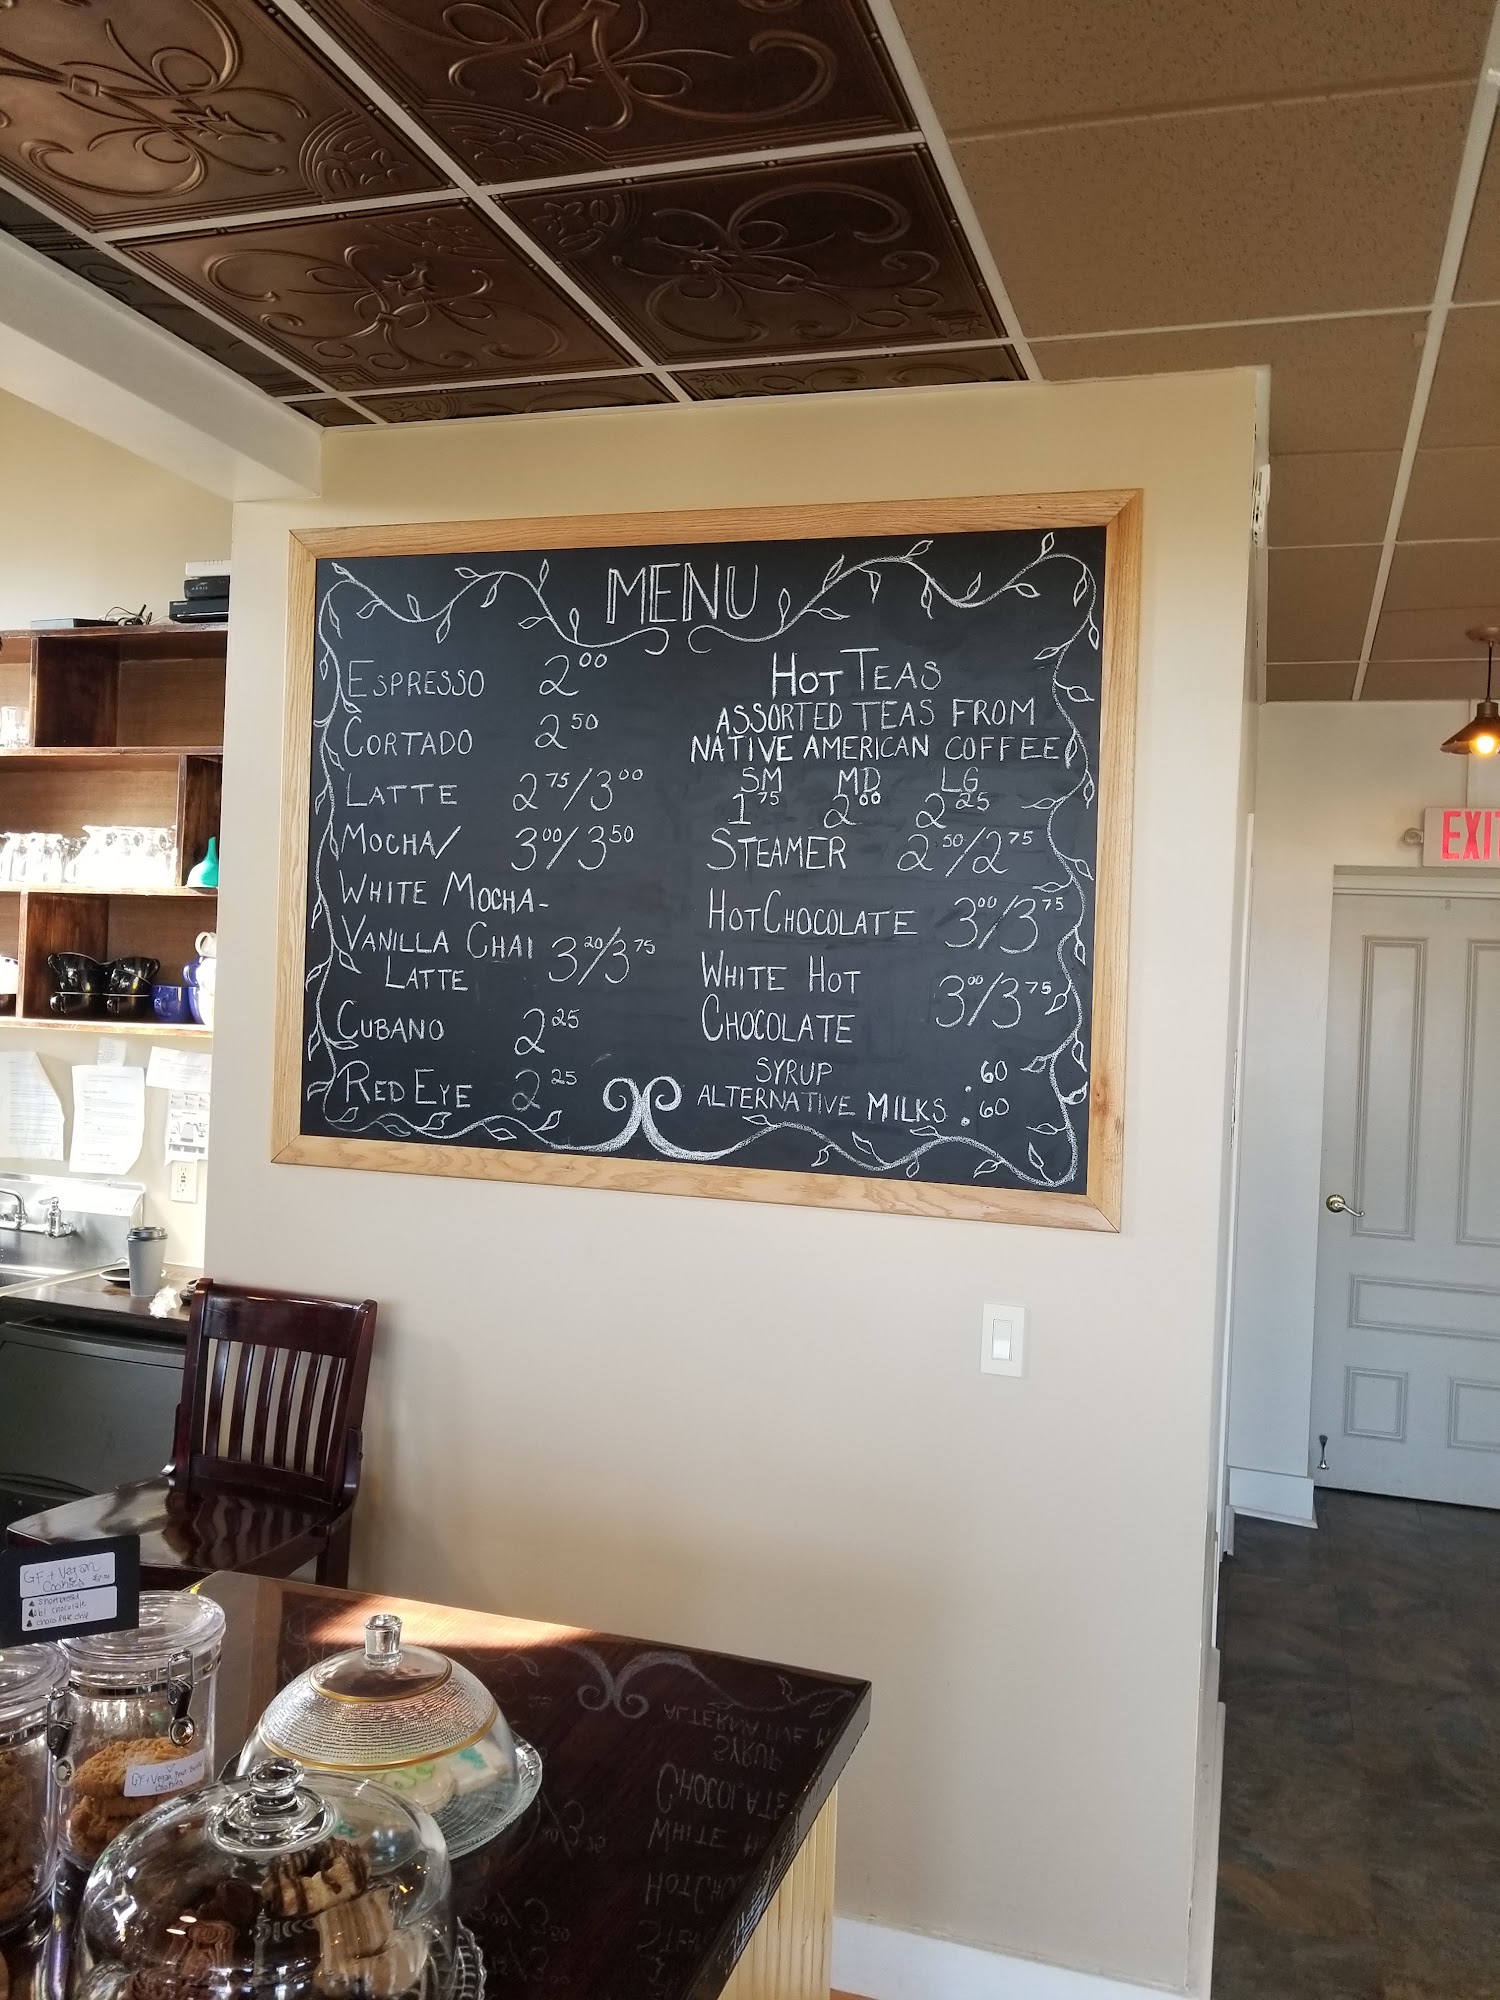 MENU
ESPRESSO 2.00
CORTADO 2.50
LATTE 2.75/3.00
MOCHA/ 3.00/3.50
WHITE MOCHA-
VANILLA CHAI 3.20/3.75
LATTE
CUBANO 2.25
RED EYE 2.25
HOT TEAS
ASSORTED TEAS FROM
NATIVE AMERICAN COFFEE
SM MD LG
1.75 2.00 2.25
STEAMER 2.50/2.75
HOT CHOCOLATE 3.00/3.75
WHITE HOT
CHOCOLATE 3.00/3.75
SYRUP .60
ALTERNATIVE MILKS .60
EXIT
GF + Vegan
Cookies
shortbread
chocolate
chocolate chip
GF + Vegan
Cookies